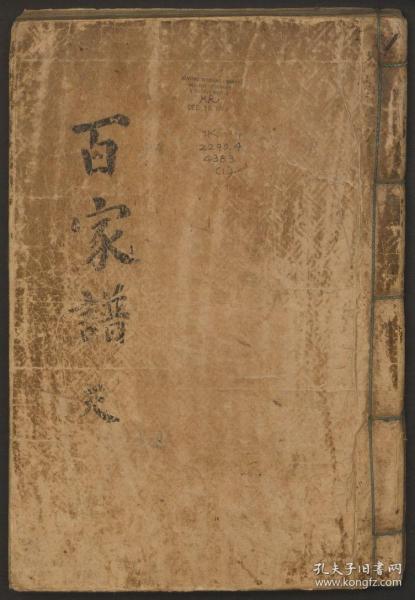 百家譜 天
HARVARD-YENCHING LIBRARY
DEC 18
TK
2290.4
4383
(1)
孔夫子旧书网
www.kongfz.com